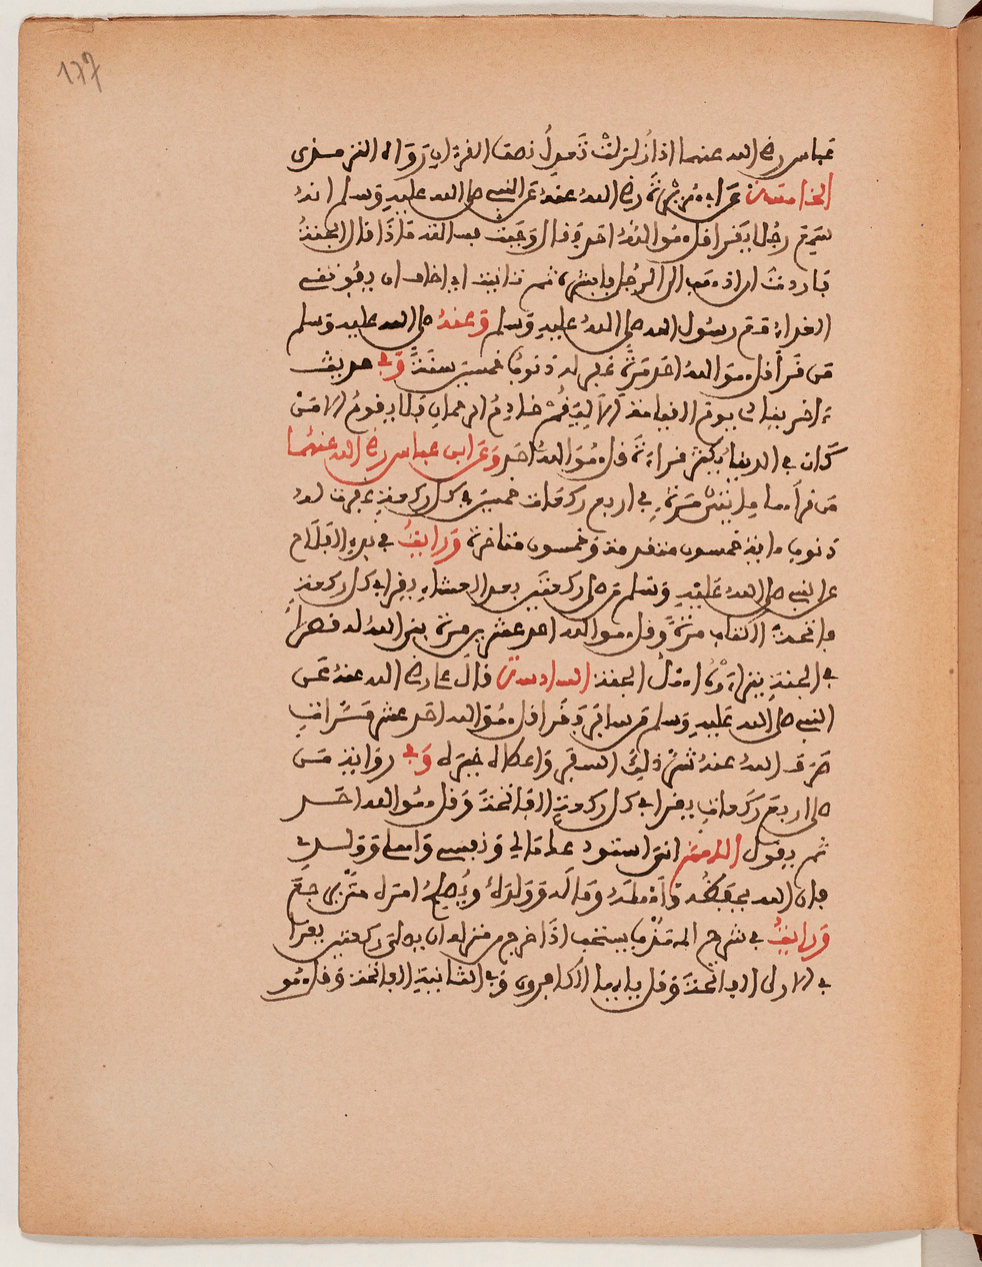 ١٧٧
عباس رضي الله عنهما اذا زلزلت تعدل نصف القرءان رواه الترمذي
الخامسة عن ابي هريرة رضي الله عنه عن النبي صلى الله عليه وسلم انه
سمع رجلا يقرا قل هو الله احد فقال وجبت فسالته ماذا قال الجنة
فاردت ان اذهب الى الرجل فابشره ثم خفت ان يفوتني
الغداء مع رسول الله صلى الله عليه وسلم وعنه صلى الله عليه وسلم
من قرا قل هو الله احد مرة غفر له ذنوب خمسين سنة وفي حديث
ءاخر ينادى يوم القيامة الا ليقم خادم الرحمان فلا يقوم الا من
كان في الدنيا يكثر قراءة قل هو الله احد وعن ابن عباس رضي الله عنهما
من قراها مايتي مرة في اربع ركعات خمسين في كل ركعة غفرت له
ذنوب ماية خمسون متقدمة وخمسون متاخرة ورايت في
عن النبي صلى الله عليه وسلم من صلى ركعتين بعد العشاء يقرا في كل ركعة
فاتحة الكتاب مرة وقل هو الله احد عشرين مرة بنى الله له قصرا
في الجنة يتراءاه اهل الجنة السادسة قال علي رضي الله عنه عن
النبي صلى الله عليه وسلم من سافر فقرا قل هو الله احد عشر مرات
صرف الله عنه شر ذلك السفر واعطاه خيره وفي رواية من
صلى اربع ركعات يقرا في كل ركعة الفاتحة وقل هو الله احد
ثم يقول اللهم اني استودعك مالي ونفسي واهلي وولدي
فان الله يحفظه واهله وماله وولده ويصلح امره حتى يرجع
ورايت في شرح المهذب يستحب اذا خرج من منزله ان يصلي ركعتين يقرا
في الاولى الفاتحة وقل يا ايها الكافرون وفي الثانية الفاتحة وقل هو